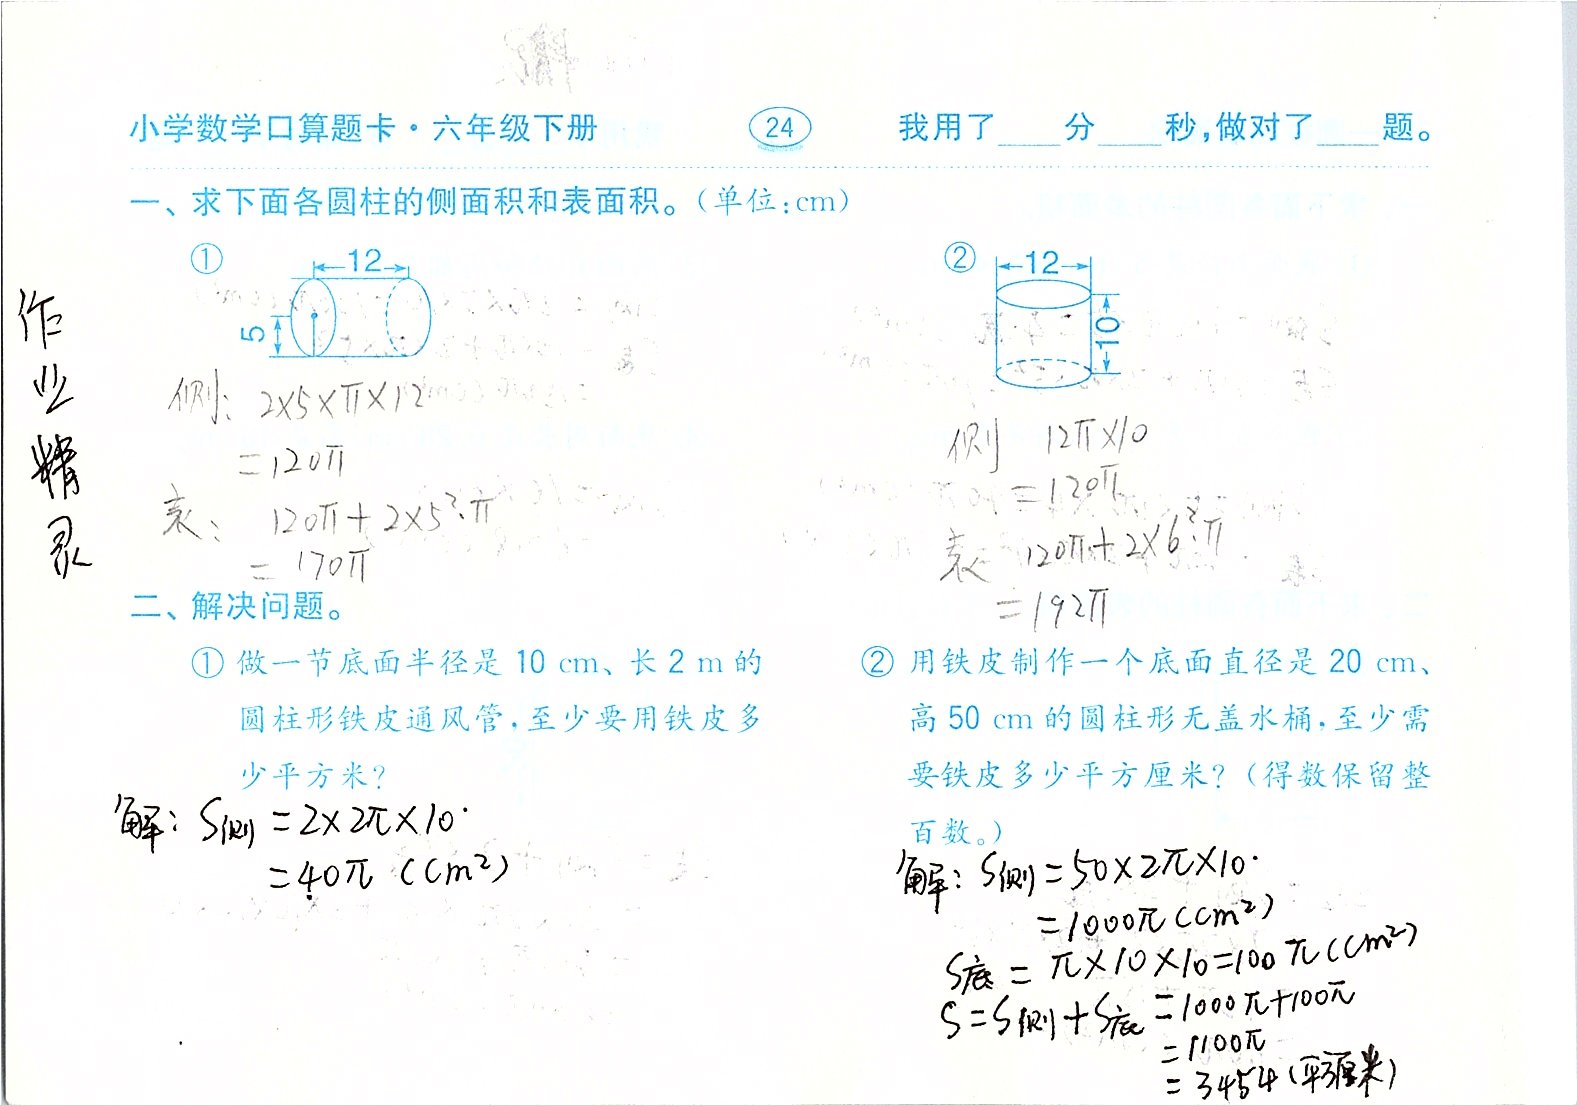 小学数学口算题卡·六年级下册 24 我用了____分____秒,做对了____题。
一、求下面各圆柱的侧面积和表面积。(单位:cm)
① 12 5
侧: 2×5×π×12
=120π
表: 120π+2×5²·π
=170π
② 12 10
侧 12π×10
=120π
表 120π+2×6²·π
=192π
作业精灵
二、解决问题。
① 做一节底面半径是 10 cm、长 2 m 的
圆柱形铁皮通风管,至少要用铁皮多
少平方米?
解: S侧=2×2π×10
=40π (cm²)
② 用铁皮制作一个底面直径是 20 cm、
高 50 cm 的圆柱形无盖水桶,至少需
要铁皮多少平方厘米?(得数保留整
百数。)
解: S侧=50×2π×10
=1000π(cm²)
S底=π×10×10=100π(cm²)
S=S侧+S底=1000π+100π
=1100π
=3454(平方厘米)